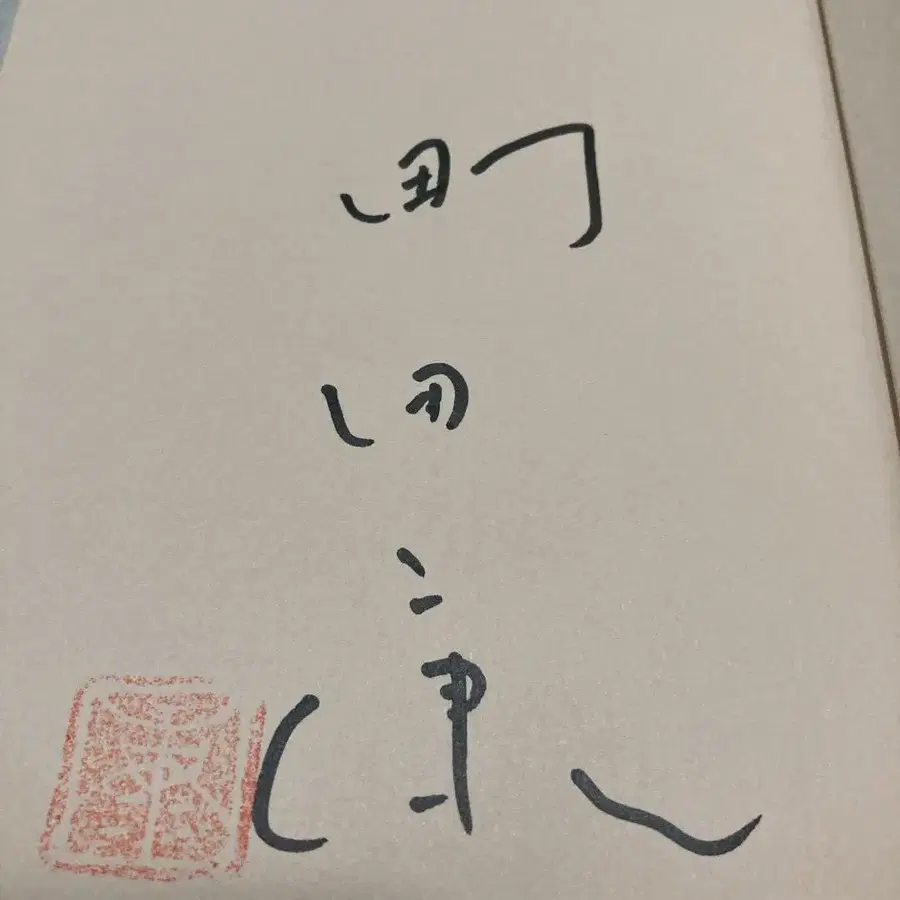 町田康